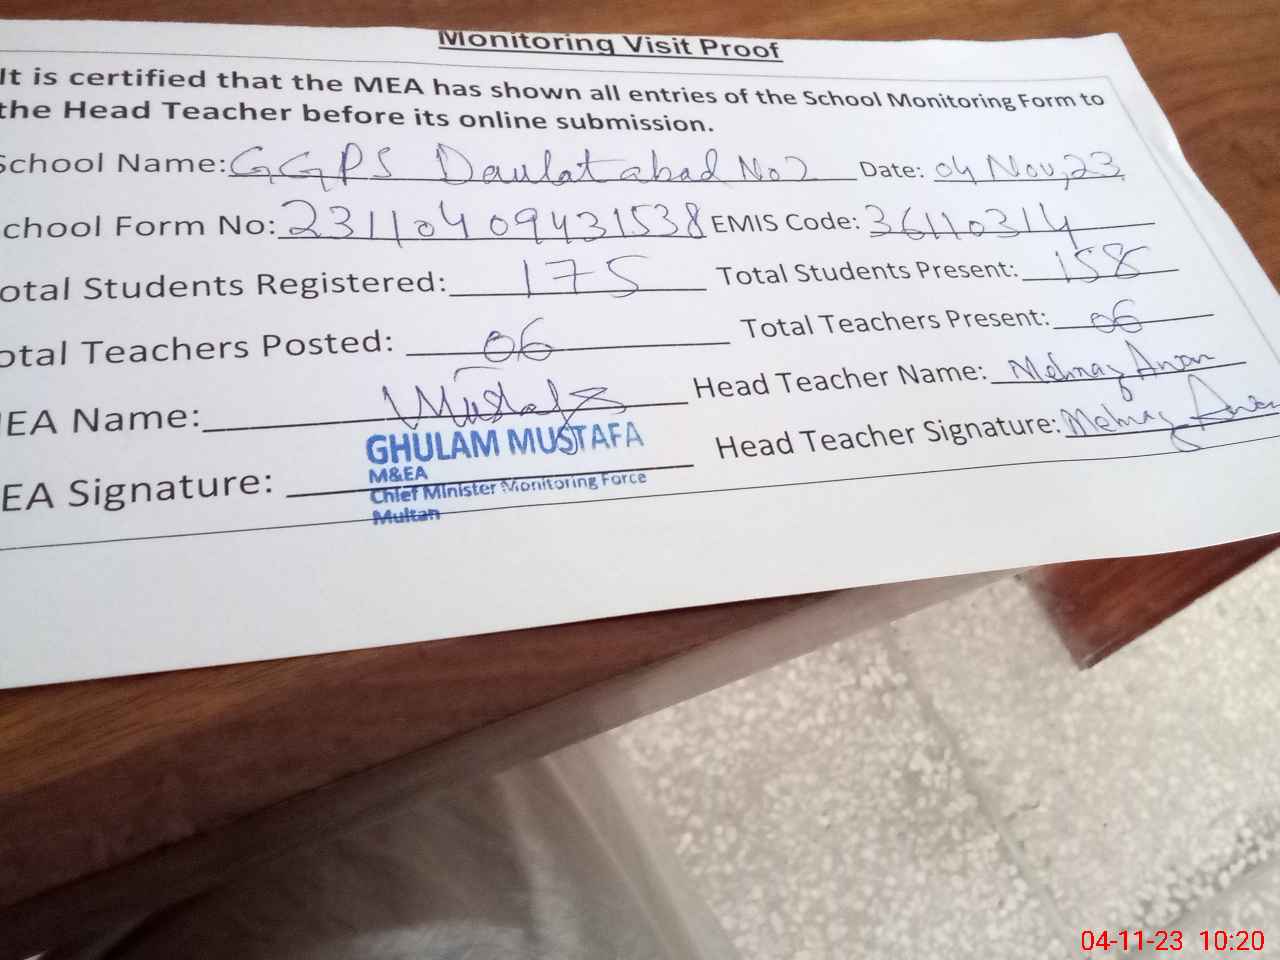 Monitoring Visit Proof
It is certified that the MEA has shown all entries of the School Monitoring Form to
the Head Teacher before its online submission.
School Name: GGPS Daulatabad No 2 Date: 04 Nov, 23
chool Form No: 23110409431538 EMIS Code: 36110314
otal Students Registered: 175 Total Students Present: 158
otal Teachers Posted: 06 Total Teachers Present: 06
EA Name: Mustafa Head Teacher Name: Mehnaz Anwar
GHULAM MUSTAFA
EA Signature: Head Teacher Signature: Mehnaz Anwar
M&EA
Chief Minister Monitoring Force
Multan
04-11-23 10:20